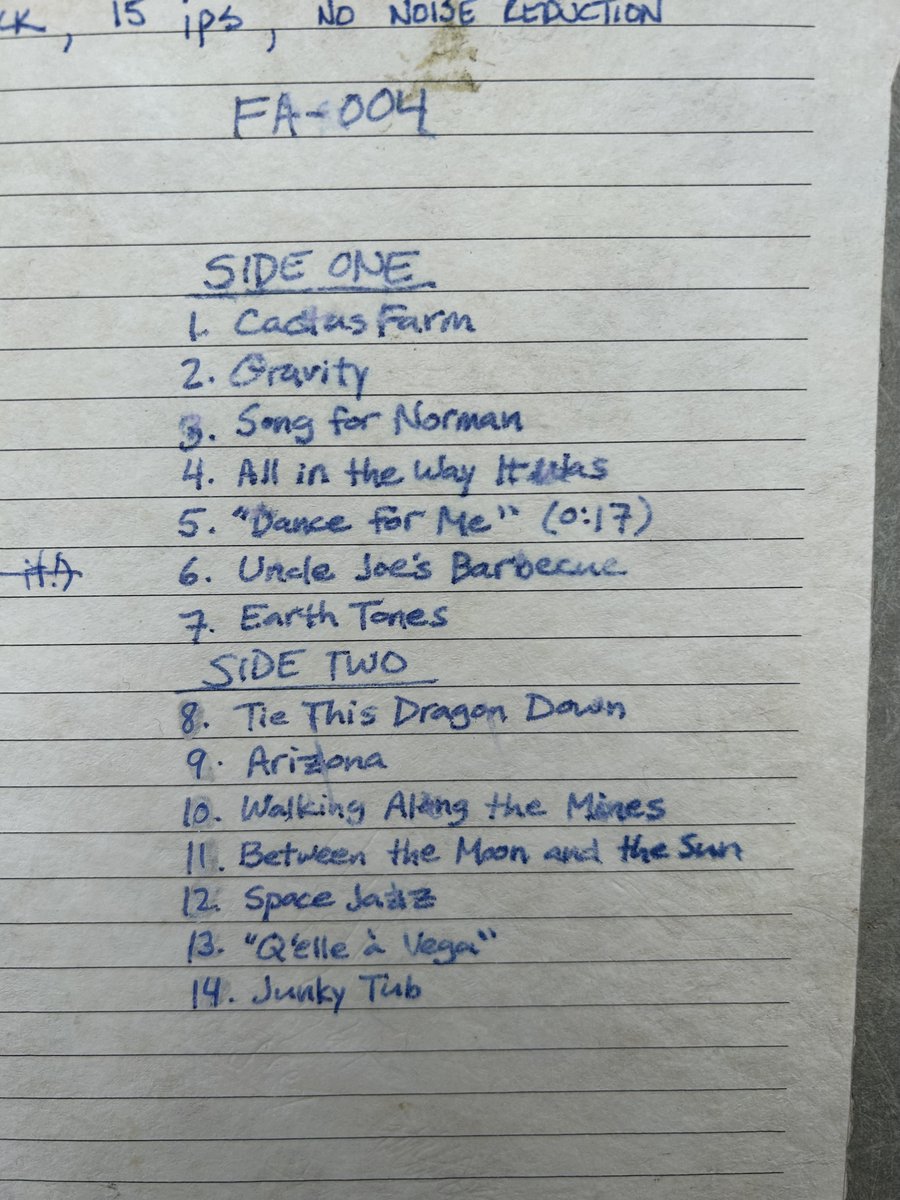 CK, 15 ips, NO NOISE REDUCTION
FA-004
SIDE ONE
1. Cactus Farm
2. Gravity
3. Song for Norman
4. All in the Way It Was
5. "Dance for Me" (0:17)
it!)
6. Uncle Joe's Barbecue
7. Earth Tones
SIDE TWO
8. Tie This Dragon Down
9. Arizona
10. Walking Along the Mines
11. Between the Moon and the Sun
12. Space Jazz
13. "Q'elle à Vega"
14. Junky Tub